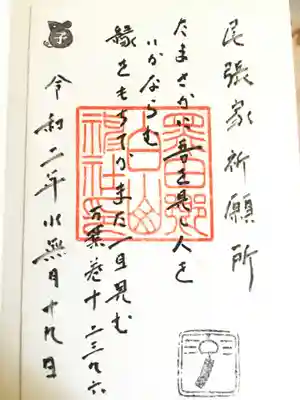 子
尾張家祈願所
たまさかに吾を見し人を
いかならむ
縁をもちてかまた一目見む
万葉巻十二三九六
令和二年水無月十九日
白山
神社印